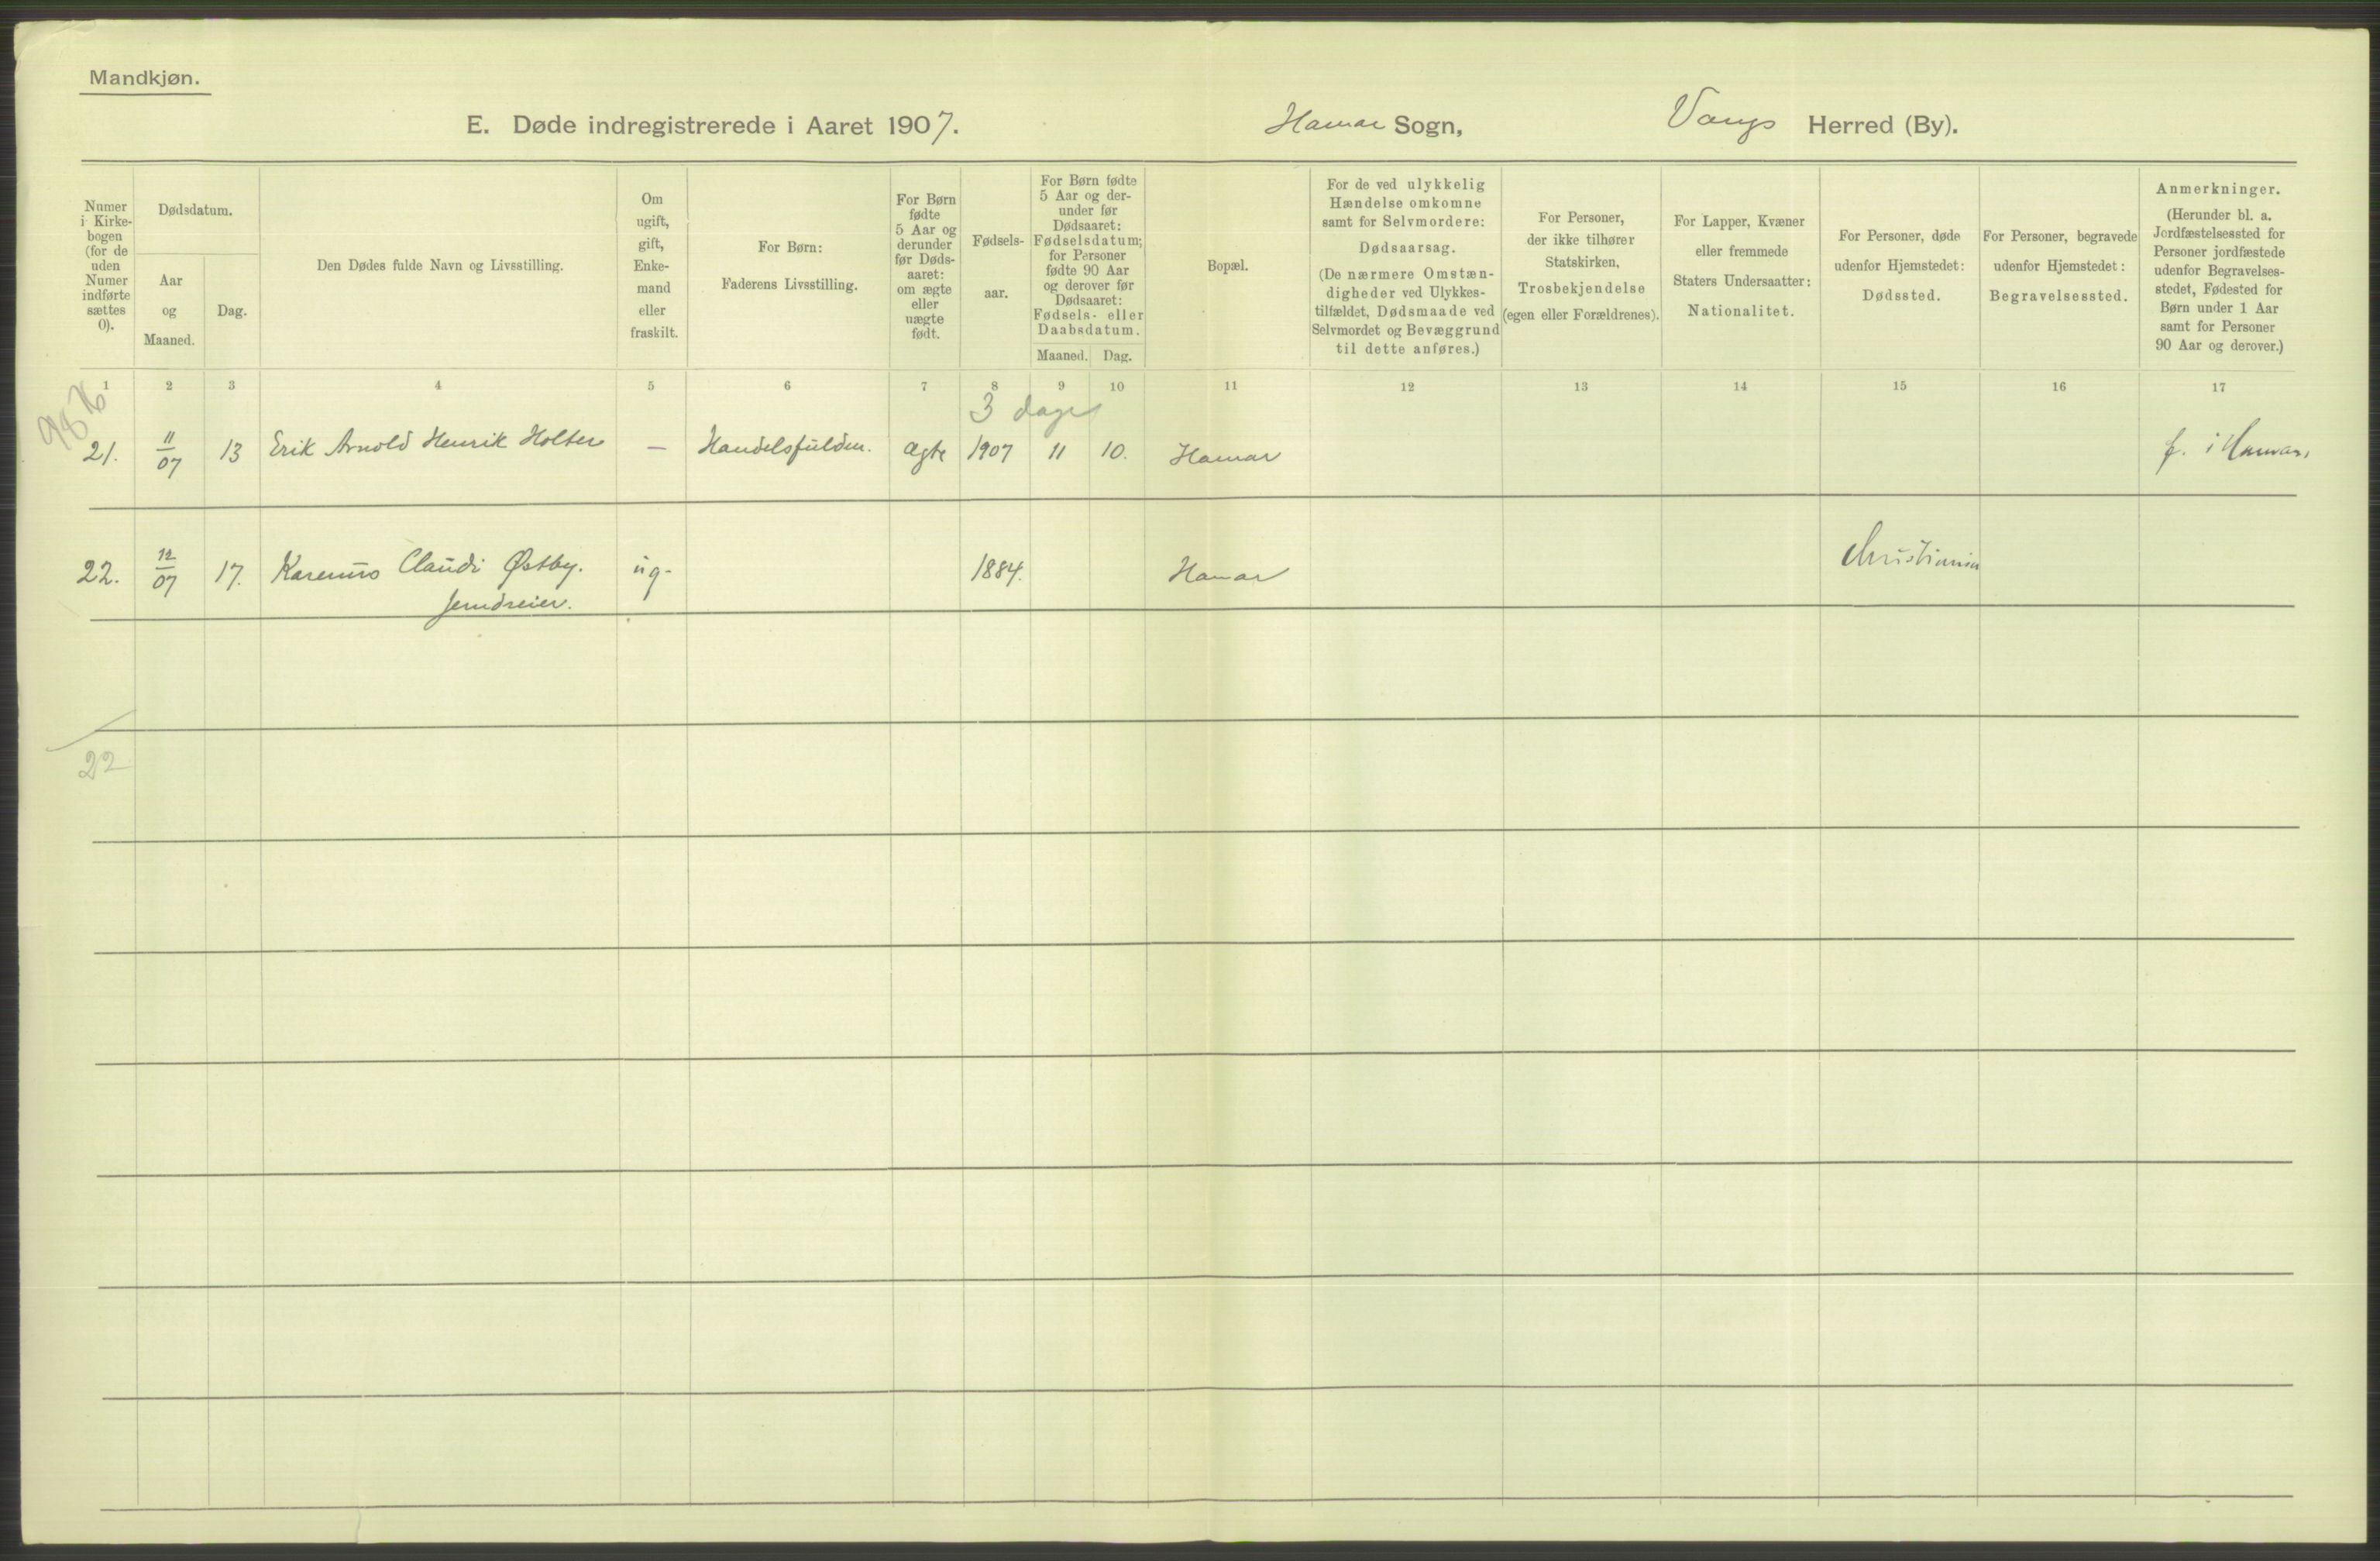 Mandkjøn.
E. Døde indregistrerede i Aaret 1907. Hamar Sogn, Vangs Herred (By).
Numer i Kirkebogen (for de uden Numer indførte sættes 0).
Dødsdatum.
Aar og Maaned.
Dag.
Den Dødes fulde Navn og Livsstilling.
Om ugift, gift, Enkemand eller fraskilt.
For Børn: Faderens Livsstilling.
For Børn fødte 5 Aar og derunder før Dødsaaret: om ægte eller uægte født.
Fødselsaar.
For Børn fødte 5 Aar og derunder før Dødsaaret: Fødselsdatum; for Personer fødte 90 Aar og derover før Dødsaaret: Fødsels- eller Daabsdatum.
Maaned. Dag.
Bopæl.
For de ved ulykkelig Hændelse omkomne samt for Selvmordere: Dødsaarsag. (De nærmere Omstændigheder ved Ulykkestilfældet, Dødsmaade ved Selvmordet og Bevæggrund til dette anføres.)
For Personer, der ikke tilhører Statskirken, Trosbekjendelse (egen eller Forældrenes).
For Lapper, Kvæner eller fremmede Staters Undersaatter: Nationalitet.
For Personer, døde udenfor Hjemstedet: Dødssted.
For Personer, begravede udenfor Hjemstedet: Begravelsessted.
Anmerkninger. (Herunder bl. a. Jordfæstelsessted for Personer jordfæstede udenfor Begravelsesstedet, Fødested for Børn under 1 Aar samt for Personer 90 Aar og derover.)
1 2 3 4 5 6 7 8 9 10 11 12 13 14 15 16 17
3 dage
21. 11/07 13 Erik Arnold Henrik Holter — Handelsfuldm. Ægte 1907 11 10. Hamar f. i Hamar.
22. 12/07 17. Karenus Claudi Østby. ug. 1884. Hamar Christiania
Jerndreier.
22